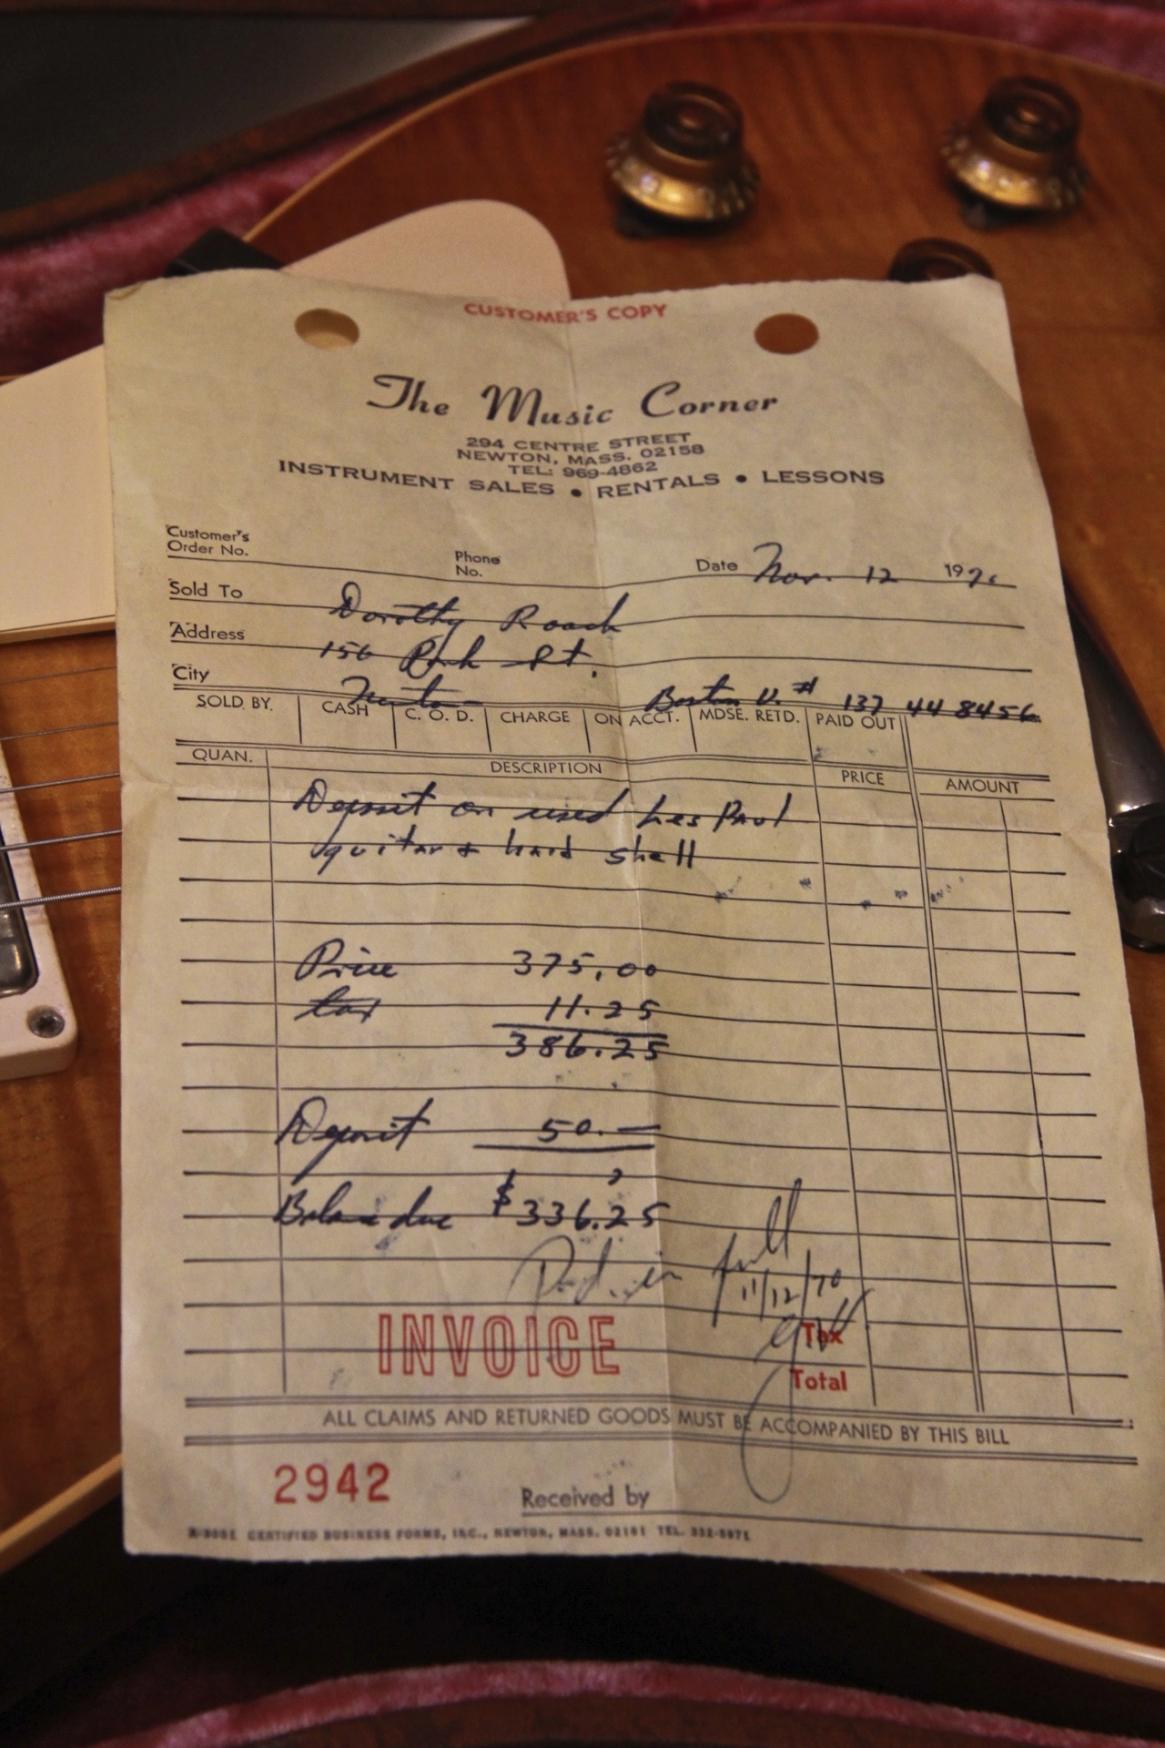 CUSTOMER'S COPY
The Music Corner
294 CENTRE STREET
NEWTON, MASS. 02158
TEL: 969-4862
INSTRUMENT SALES • RENTALS • LESSONS
Customer's
Order No.
Phone
No.
Date Nov. 12 1970
Sold To Dorothy Roach
Address 156 Park St.
City Newton Boston U. # 137 44 8456
SOLD BY. CASH C. O. D. CHARGE ON ACCT. MDSE. RETD. PAID OUT
QUAN. DESCRIPTION PRICE AMOUNT
Deposit on used Les Paul
guitar + hard shell
Price 375.00
tax 11.25
386.25
Deposit 50.—
Balance due $336.25
Pd. in full
11/12/70
INVOICE
Tax
Total
ALL CLAIMS AND RETURNED GOODS MUST BE ACCOMPANIED BY THIS BILL
2942
Received by
CERTIFIED BUSINESS FORMS, INC., NEWTON, MASS. 02161 TEL. 332-5971